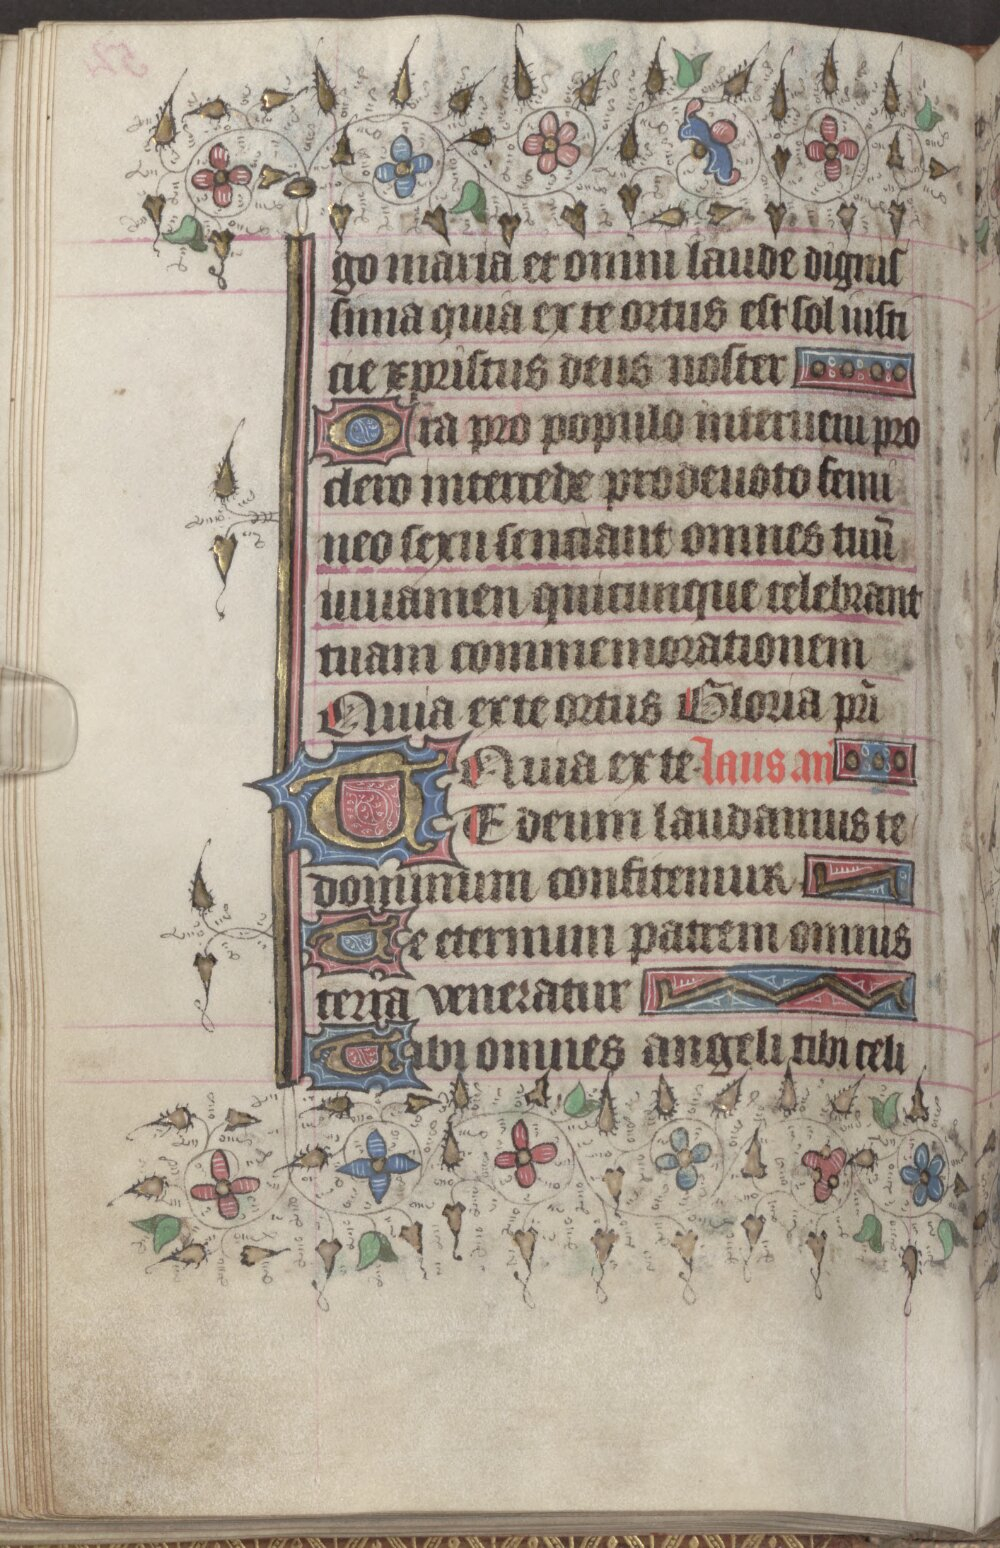 go maria et omni laude dignis
sima quia ex te ortus est sol iusti
cie xpristus deus noster
Ora pro populo interueni pro
clero intercede pro deuoto femi
neo sexu senciant omnes tuū
iuuamen quicunque celebrant
tuam commemorationem
Quia ex te ortus Gloria pri
Quia ex te laus an
TE deum laudamus te
dominum confitemur
Te eternum patrem omnis
terra veneratur
Tibi omnes angeli tibi celi